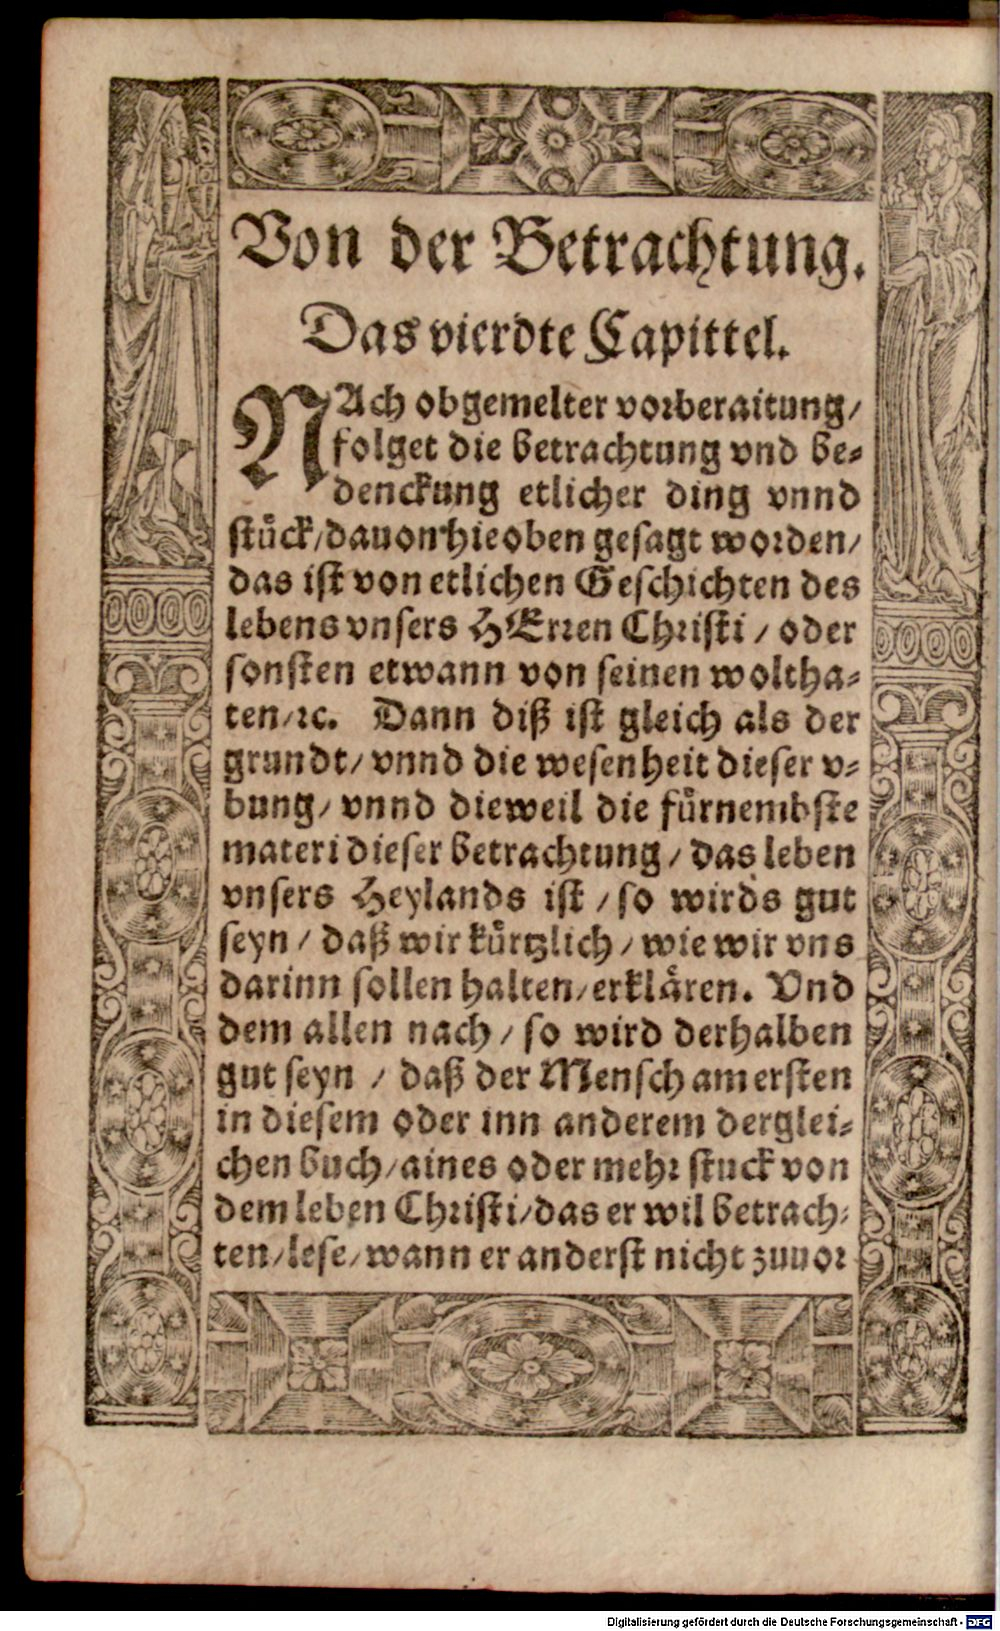 Von der Betrachtung.
Das vierdte Capittel.
NAch obgemelter vorberaitung/
folget die betrachtung vnd be⸗
denckung etlicher ding vnnd
stück/dauon hieoben gesagt worden/
das ist von etlichen Geschichten des
lebens vnsers HErren Christi / oder
sonsten etwann von seinen woltha⸗
ten/ꝛc. Dann diß ist gleich als der
grundt/ vnnd die wesenheit dieser v⸗
bung/ vnnd dieweil die fürnembste
materi dieser betrachtung / das leben
vnsers Heylands ist / so wirds gut
seyn / daß wir kürtzlich / wie wir vns
darinn sollen halten/erklären. Vnd
dem allen nach / so wird derhalben
gut seyn / daß der Mensch am ersten
in diesem oder inn anderem derglei⸗
chen buch/aines oder mehr stuck von
dem leben Christi/das er wil betrach⸗
ten/lese/wann er anderst nicht zuuor
Digitalisierung gefördert durch die Deutsche Forschungsgemeinschaft - DFG